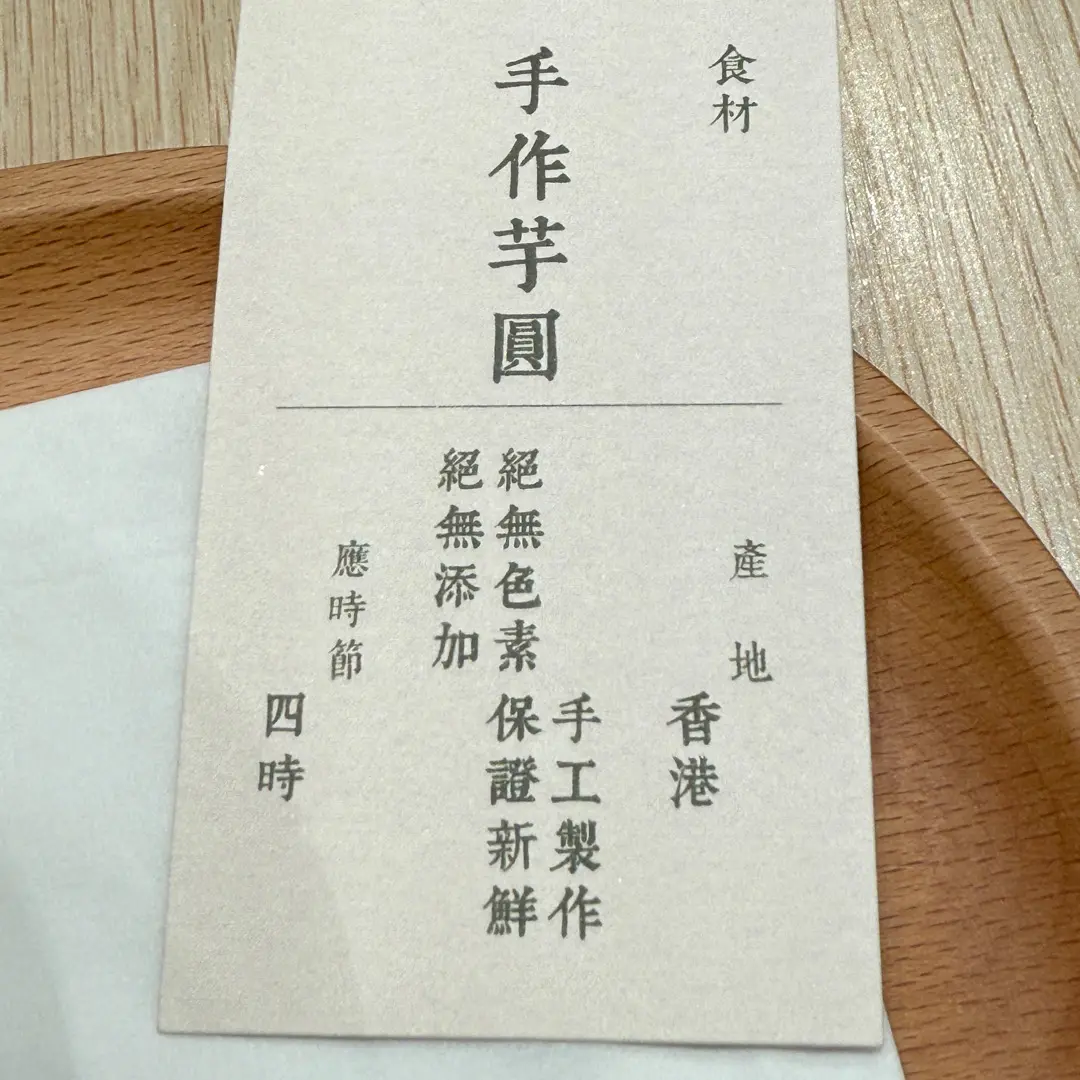 食材
手作芋圓
產地
香港
手工製作
絕無色素
保證新鮮
絕無添加
應時節
四時